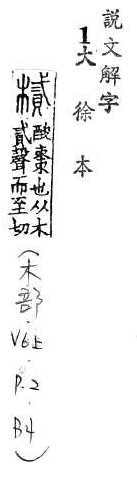 說文解字
1大徐本
樲酸棗也从木
貳聲而至切
(木部·V6上·P.2·B4)